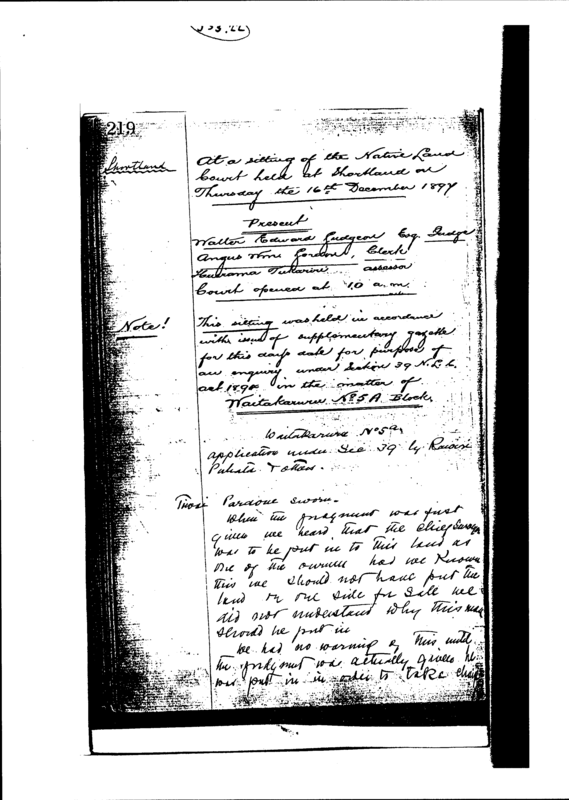 219
Shortland
At a sitting of the Native Land
Court held at Shortland on
Thursday the 16th December 1897
Present
Walter Edward Gudgeon Esq Judge
Angus Wm Gordon, Clerk
Tukarini assessor
Court opened at 10 a.m.
Note!
This sitting was held in accordance
with issue of supplementary gazette
for this days date for purpose of
an enquiry under Section 39 N.L.C.
act 1894 in the matter of
Waitakaruru No 5 A Block.
Waitakaruru No 5A
application under Sec 39 by
& others.
sworn
When the judgment was first
given we heard that the Chief Surveyor
was to be put in to this land as
one of the owners had we known
this we should not have put the
land on one side for Sale we
did not understand why this man
should be put in
We had no warning of this until
the judgment was actually given he
was put in in order to take